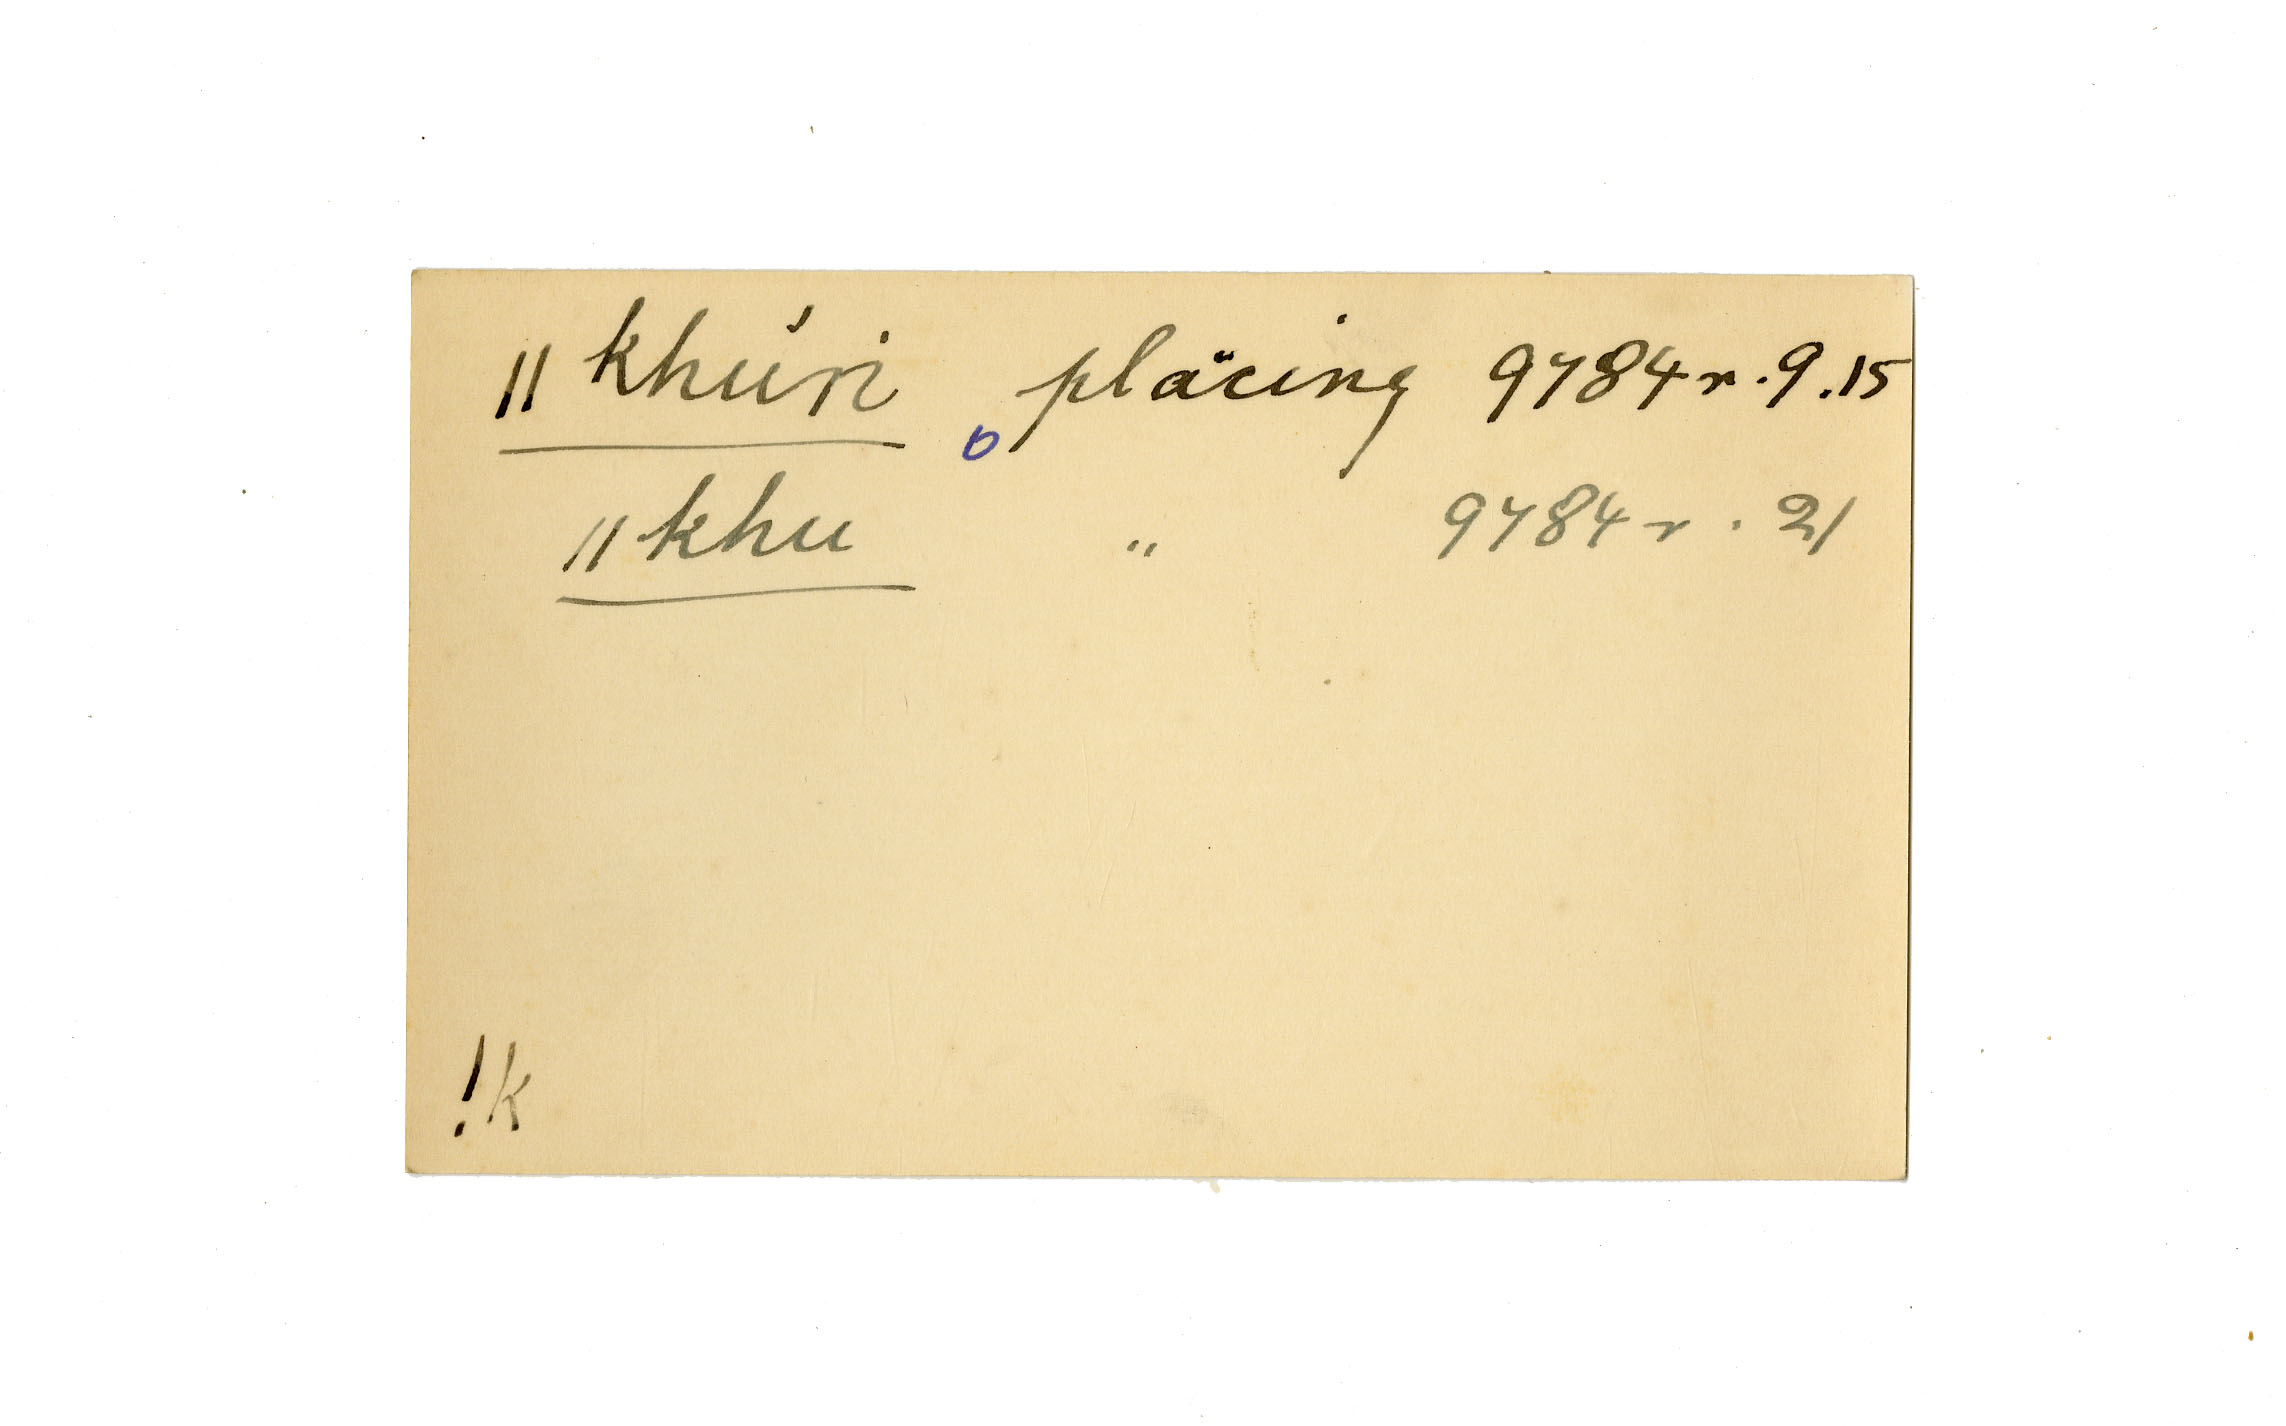 ǁkhúri placing 9784r.9.15
ǁkhu " 9784r.21
!k